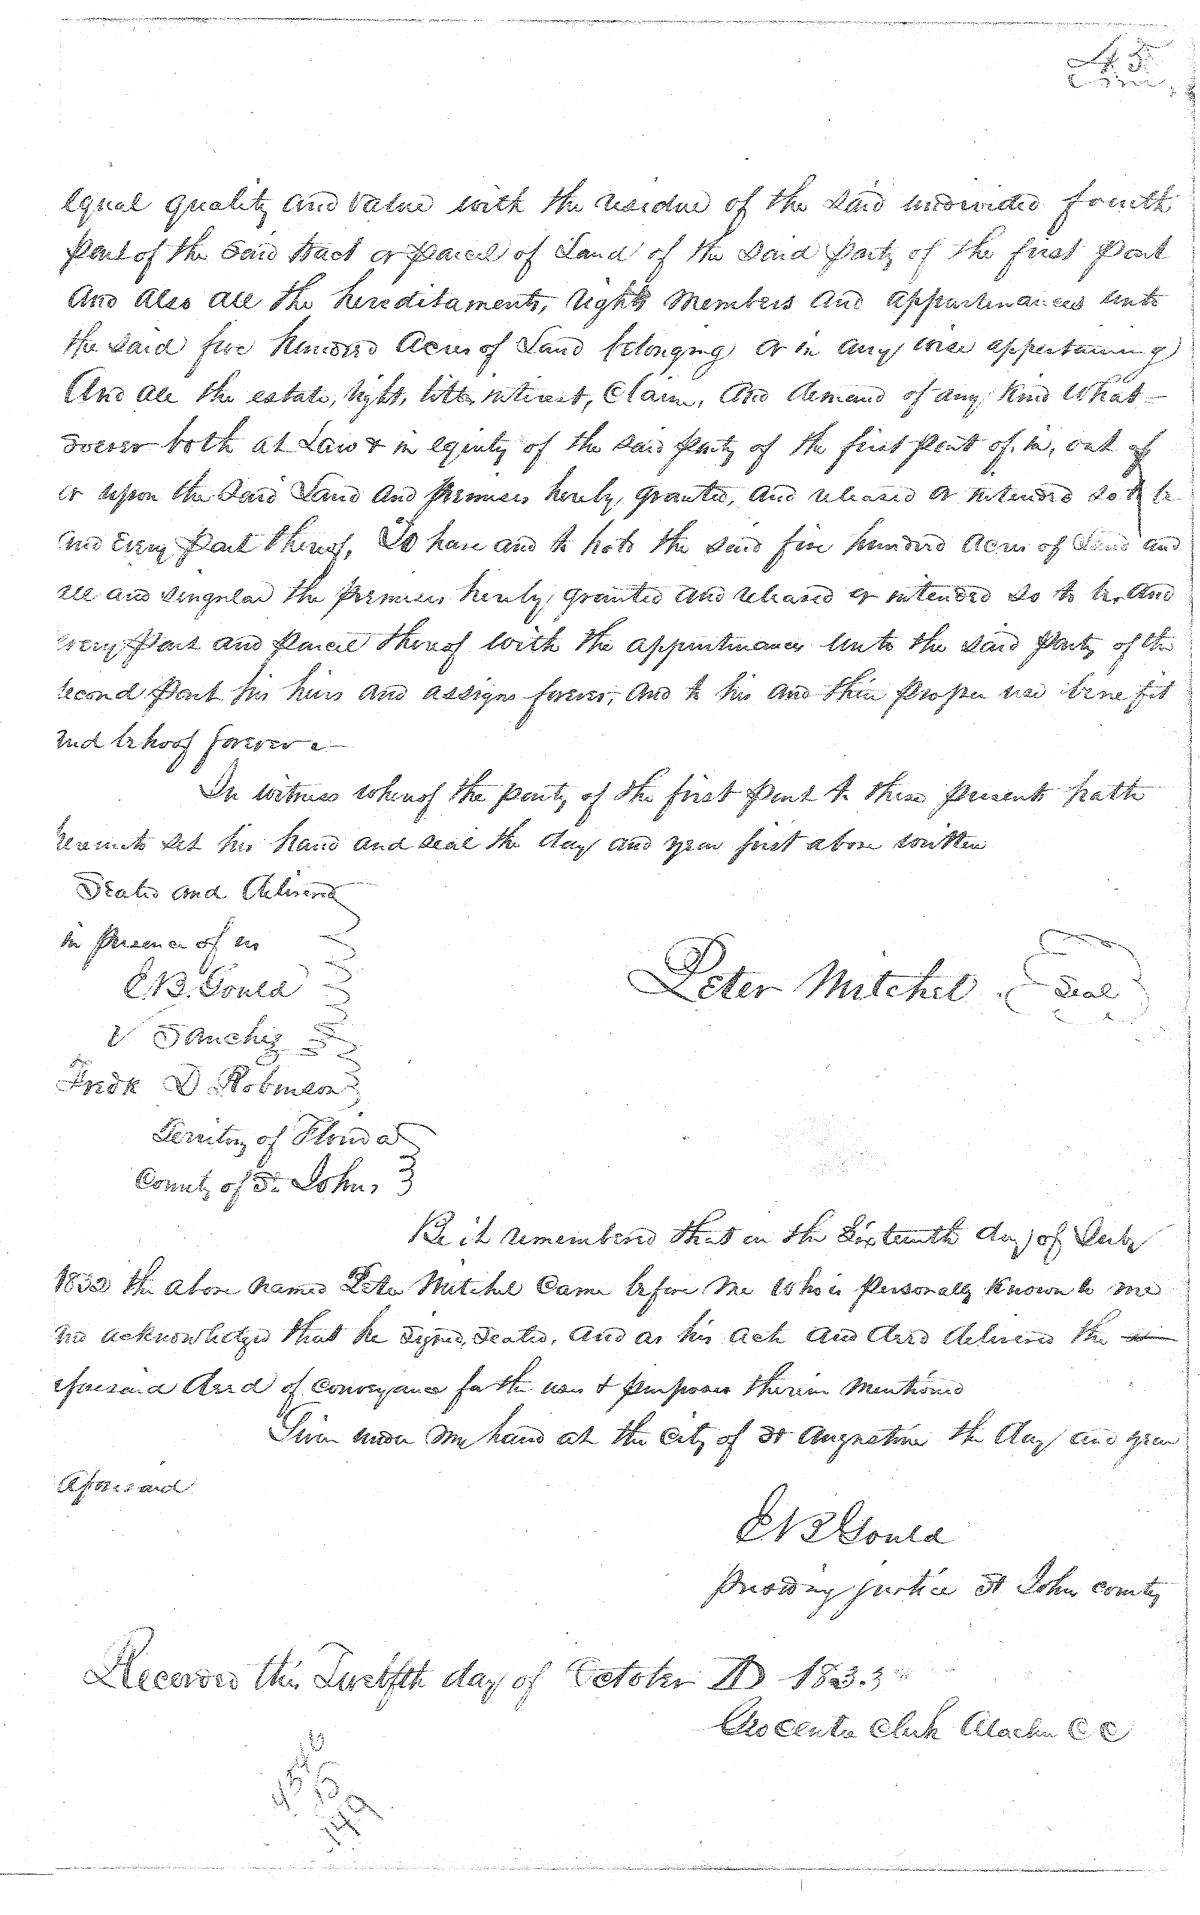 45
equal quality and value with the residue of the said undivided fourth
part of the said tract or parcel of Land of the said party of the first part
And also all the hereditaments, rights members and appurtinances unto
the said five hundred Acres of Land belonging or in any wise appertaining
And all the estate, right, title, interest, Claim, And demand of any kind what-
soever both at Law & in equity of the said party of the first part of, in, out of
or upon the said Land and premises hereby granted, and released or intended so to be
and every part thereof, To have and to hold the said five hundred acres of Land and
all and singular the premises hereby granted and released or intended so to be, And
every part and parcel thereof with the appurtinances unto the said party of the
second part his heirs and assigns forever, and to his and their proper use benefit
and behoof forever.—
In witness whereof the party of the first part to these presents hath
hereunto set his hand and seal the day and year first above written
Sealed and delivered
in presence of us
E.B. Gould
Peter Mitchel Seal
V Sanchez
Fredk D Robinson
Territory of Florida
County of St. Johns
Be it remembered that on the Sixteenth day of July
1832 the above named Peter Mitchel Came before me who is personally known to me
and acknowledged that he signed, sealed, and as his act and deed delivered the
aforesaid deed of conveyance for the uses & purposes therein mentioned
Given under my hand at the city of St Augustine the day and year
aforesaid
E B Gould
presiding justice St Johns county
Recorded this Twelfth day of October AD 1833
Geo Center Clerk Alachua C C
149